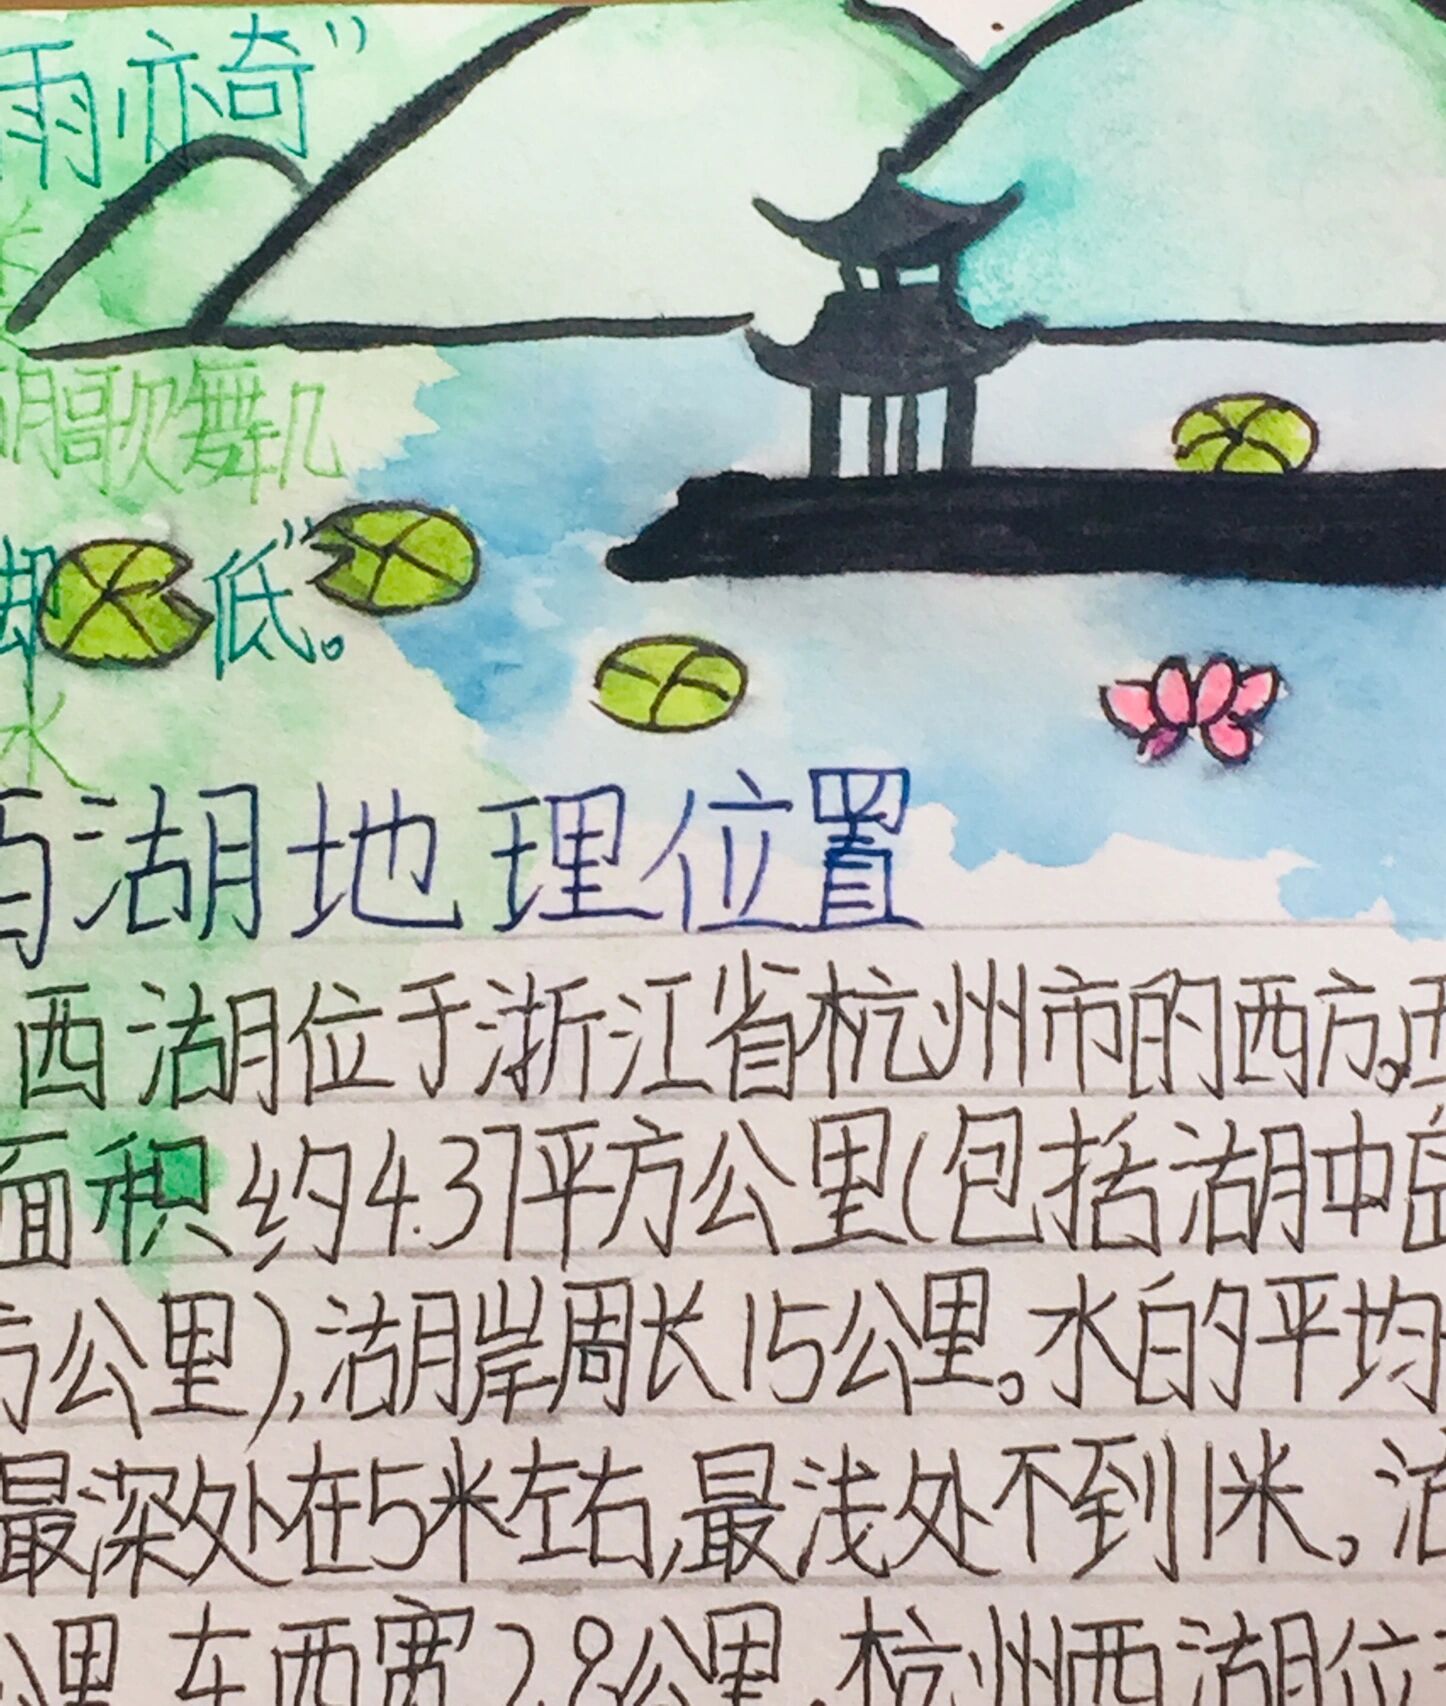 雨亦奇”
湖歌舞几
却低”。
水
西湖地理位置
西湖位于浙江省杭州市的西方。西
面积约4.37平方公里(包括湖中岛
方公里),湖岸周长15公里。水的平均
最深处在5米左右,最浅处不到1米。
公里,东西宽2.8公里,杭州西湖位